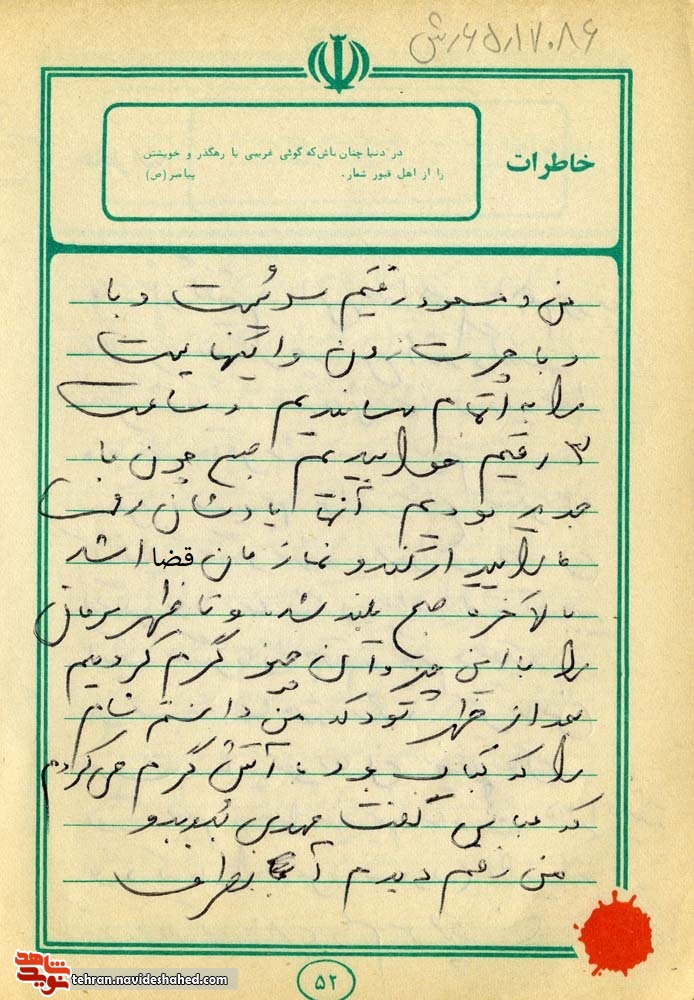 ۶ورش ۵ ر۱۷۰۸۶
خاطرات
در دنیا چنان باش که گوئی غریبی یا رهگذر و خویشتن
را از اهل قبور شمار. پیامبر (ص)
من و مسعود رفتیم سر پست و با
و با چرت زدن و اینها پست
را به اتمام رساندیم و ساعت
۳ رفتیم خوابیدیم صبح چون ما
جدید بودیم آنها یادشان رفت
ما را بیدار کنند و نماز مان قضا شد
بالاخره صبح بلند شدیم و تا ظهر سرمان
را با این چیز و آن چیز گرم کردیم
بعد از ظهر بود که من داشتم شام
را که کباب بود با آتش گرم می‌کردم
که عباس گفت مهدی بدو بدو
من رفتم دیدم آنطرف
۵۲
نوید شاهد
tehran.navideshahed.com